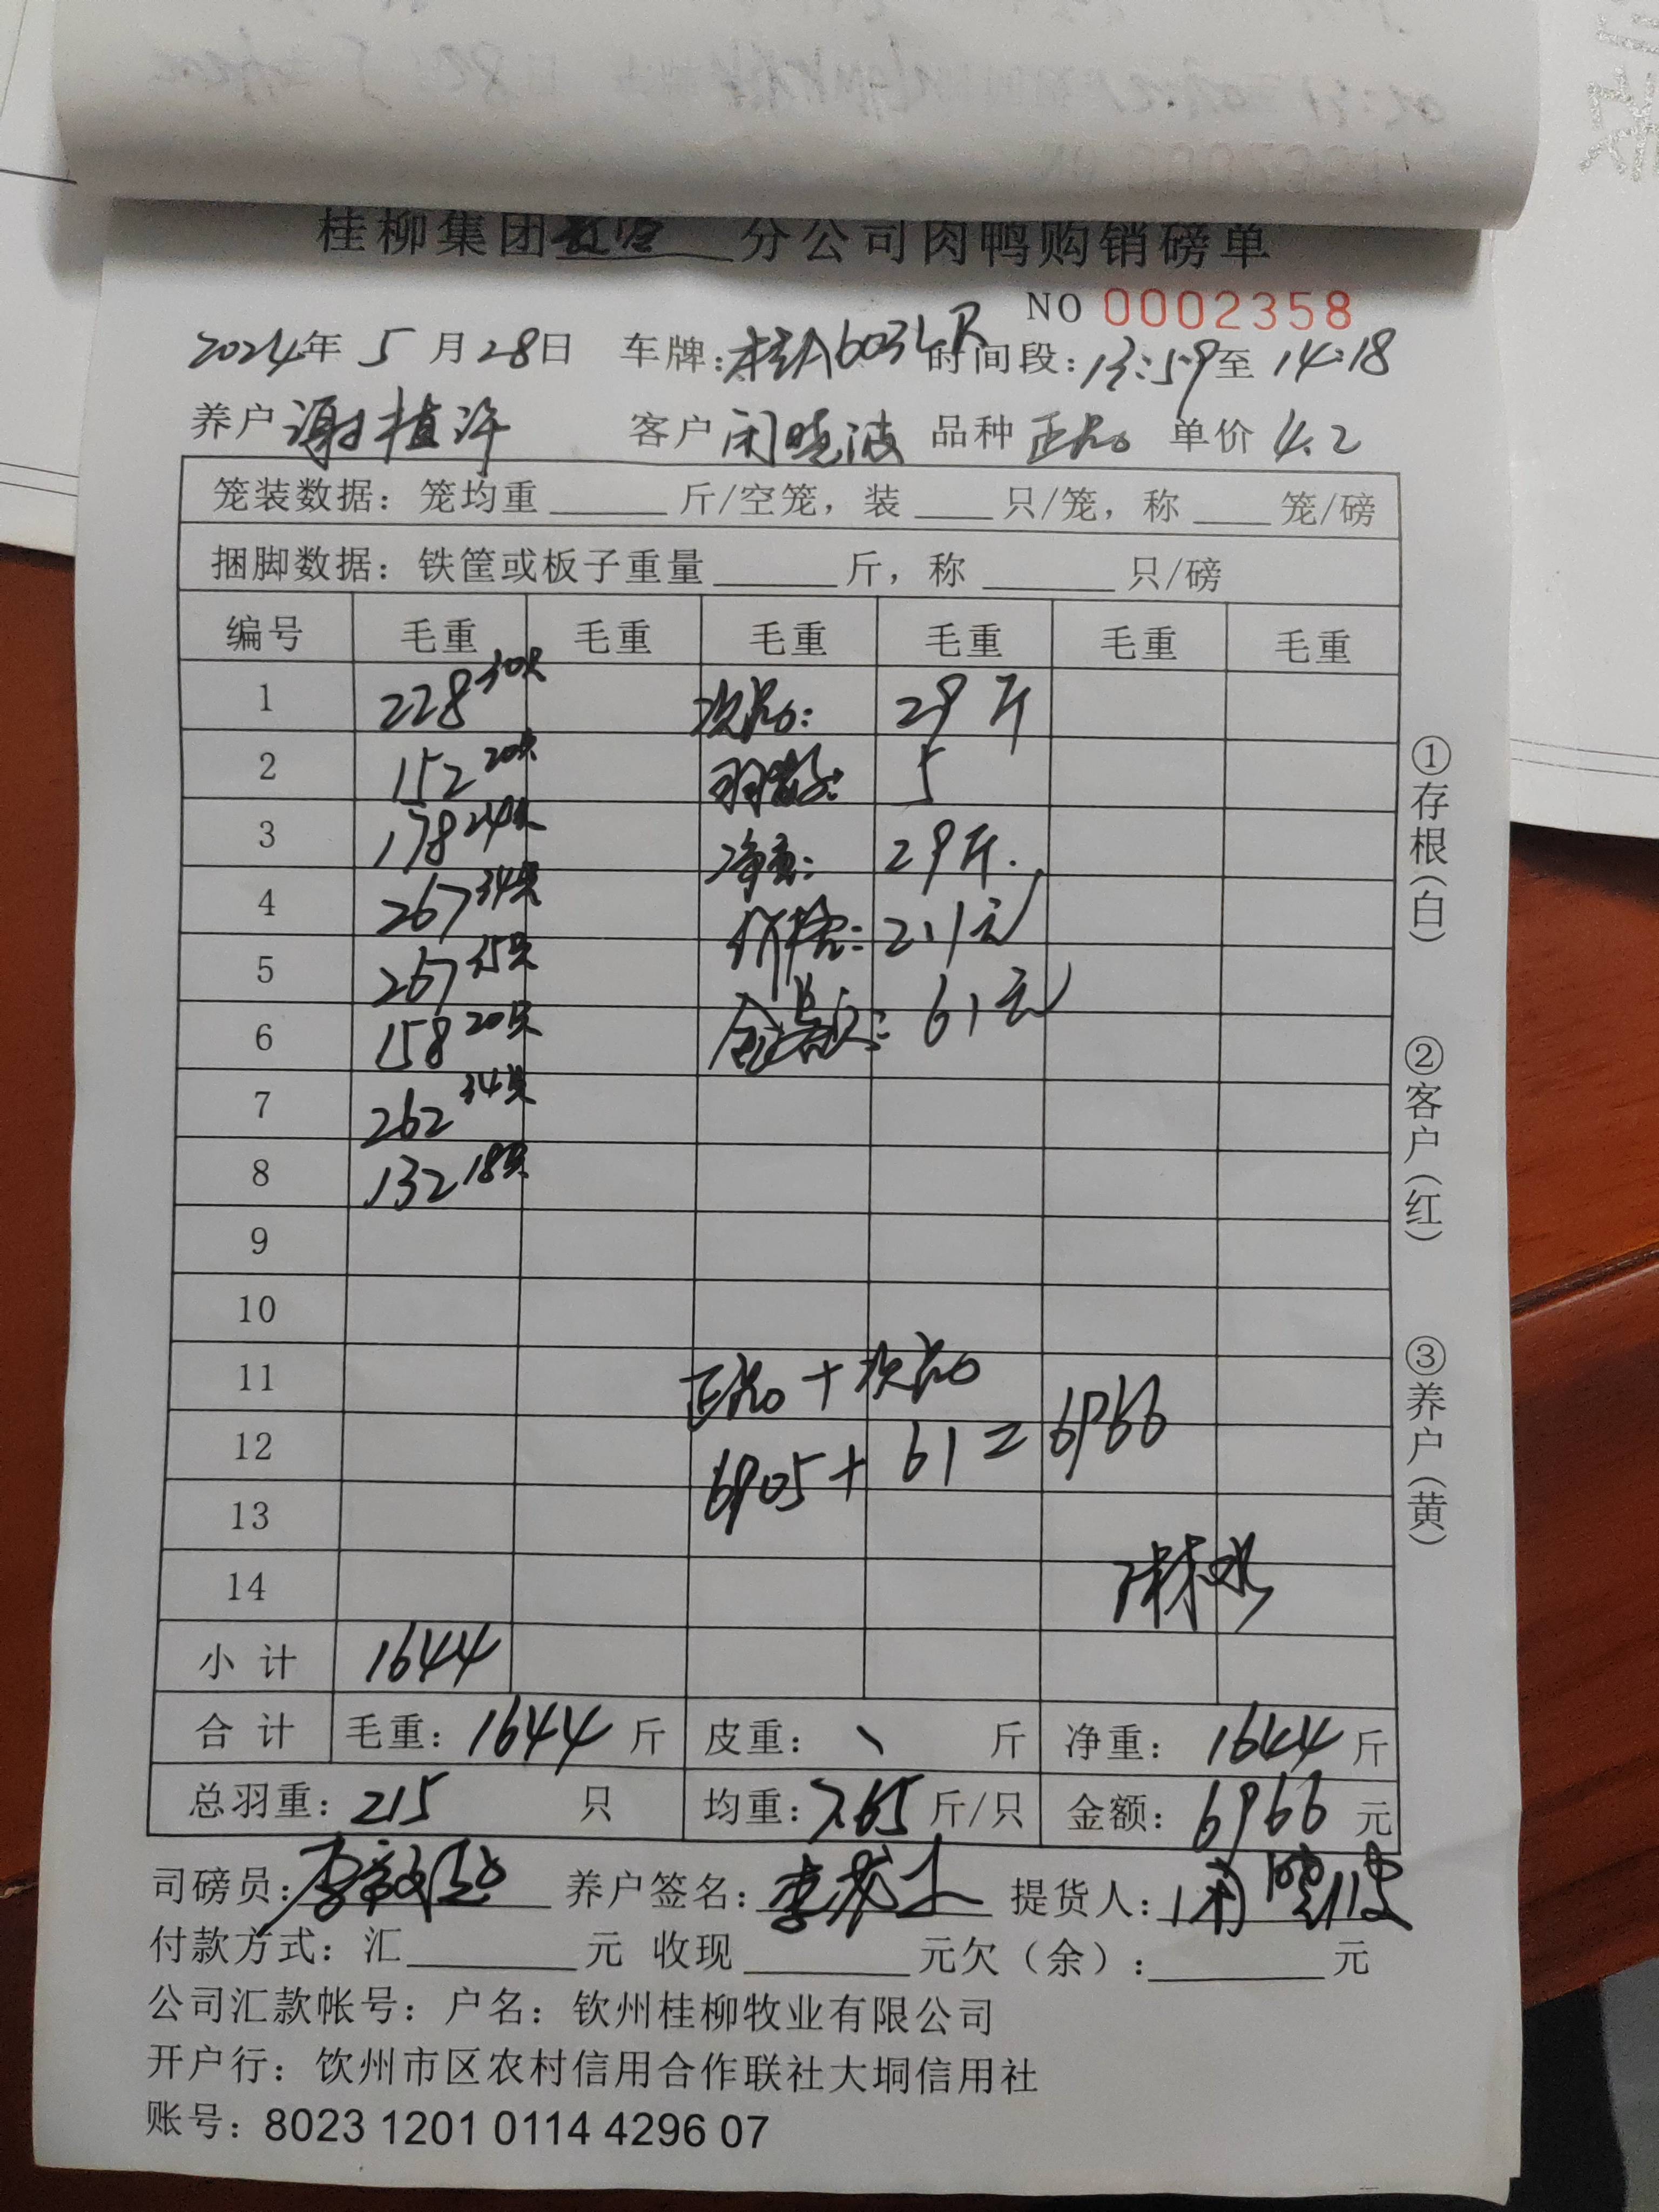 桂柳集团 分公司肉鸭购销磅单
NO 0002358
2024年 5 月 28日 车牌:桂A603LR 时间段:13:59至 14:18
养户 谢植许 客户 闭晓波 品种 正品 单价 4.2
笼装数据：笼均重 斤/空笼，装 只/笼，称 笼/磅
捆脚数据：铁筐或板子重量 斤，称 只/磅
编号 毛重 毛重 毛重 毛重 毛重 毛重
1 228 30只 次品: 29斤
2 152 20只 羽数: 5
3 178 24只 净重: 29斤.
4 267 34只 价格: 2.1元
5 267 35只 金额: 61元
6 158 20只
7 262 34只
8 132 18只
9
10
11 正品 + 次品
12 6905 + 61 = 6966
13
14
小计 1644
合计 毛重: 1644 斤 皮重: 斤 净重: 1644 斤
总羽重: 215 只 均重: 7.65 斤/只 金额: 6966 元
司磅员: 养户签名: 提货人: 闭晓波
付款方式：汇 元 收现 元欠（余）: 元
公司汇款帐号：户名：钦州桂柳牧业有限公司
开户行：饮州市区农村信用合作联社大垌信用社
账号：8023 1201 0114 4296 07
①存根（白）
②客户（红）
③养户（黄）